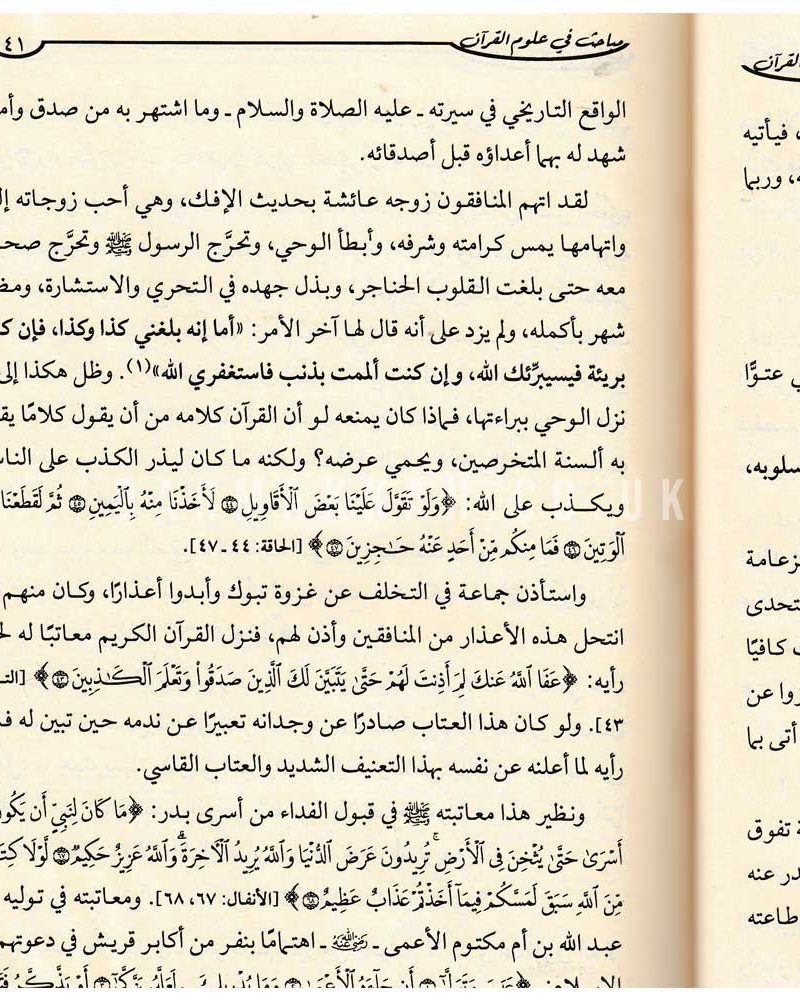 مباحث في علوم القرآن
٤١
الواقع التاريخي في سيرته ـ عليه الصلاة والسلام ـ وما اشتهر به من صدق
شهد له بهما أعداؤه قبل أصدقائه.
لقد اتهم المنافقون زوجه عائشة بحديث الإفك، وهي أحب زوجاته
واتهامها يمس كرامته وشرفه، وأبطأ الوحي، وتحرَّج الرسول ﷺ وتحرَّج
معه حتى بلغت القلوب الحناجر، وبذل جهده في التحري والاستشارة،
شهر بأكمله، ولم يزد على أنه قال لها آخر الأمر: «أما إنه بلغني كذا وكذا، فإن
بريئة فيسيبرِّئك الله، وإن كنت ألممت بذنب فاستغفري الله»(١). وظل هكذا إلى
نزل الوحي ببراءتها، فماذا كان يمنعه لو أن القرآن كلامه من أن يقول كلامًا
به ألسنة المتخرصين، ويحمي عرضه؟ ولكنه ما كان ليذر الكذب على
ويكذب على الله: ﴿وَلَوْ تَقَوَّلَ عَلَيْنَا بَعْضَ الْأَقَاوِيلِ ٤٤ لَأَخَذْنَا مِنْهُ بِالْيَمِينِ ٤٥ ثُمَّ لَقَطَعْنَا
الْوَتِينَ ٤٦ فَمَا مِنكُم مِّنْ أَحَدٍ عَنْهُ حَاجِزِينَ ٤٧﴾ [الحاقة: ٤٤ ـ ٤٧].
واستأذن جماعة في التخلف عن غزوة تبوك وأبدوا أعذارًا، وكان منهم
انتحل هذه الأعذار من المنافقين وأذن لهم، فنزل القرآن الكريم معاتبًا له
رأيه: ﴿عَفَا اللَّهُ عَنكَ لِمَ أَذِنتَ لَهُمْ حَتَّىٰ يَتَبَيَّنَ لَكَ الَّذِينَ صَدَقُواْ وَتَعْلَمَ الْكَاذِبِينَ ٤٣﴾
٤٣]. ولو كان هذا العتاب صادرًا عن وجدانه تعبيرًا عن ندمه حين تبين له
رأيه لما أعلنه عن نفسه بهذا التعنيف الشديد والعتاب القاسي.
ونظير هذا معاتبته ﷺ في قبول الفداء من أسرى بدر: ﴿مَا كَانَ لِنَبِيٍّ أَن
أَسْرَىٰ حَتَّىٰ يُثْخِنَ فِي الْأَرْضِ ۚ تُرِيدُونَ عَرَضَ الدُّنْيَا وَاللَّهُ يُرِيدُ الْآخِرَةَ ۗ وَاللَّهُ عَزِيزٌ حَكِيمٌ ٦٧ لَّوْلَا
مِّنَ اللَّهِ سَبَقَ لَمَسَّكُمْ فِيمَا أَخَذْتُمْ عَذَابٌ عَظِيمٌ ٦٨﴾ [الأنفال: ٦٧، ٦٨]. ومعاتبته في توليه
عبد الله بن أم مكتوم الأعمى ـ رضي الله عنه ـ اهتمامًا بنفر من أكابر قريش في دعوتهم
القرآن
، فيأتيه
، وربما
عتوًّا
سلوبه،
كافيًا
روا عن
أتى بما
تفوق
عنه
طاعته